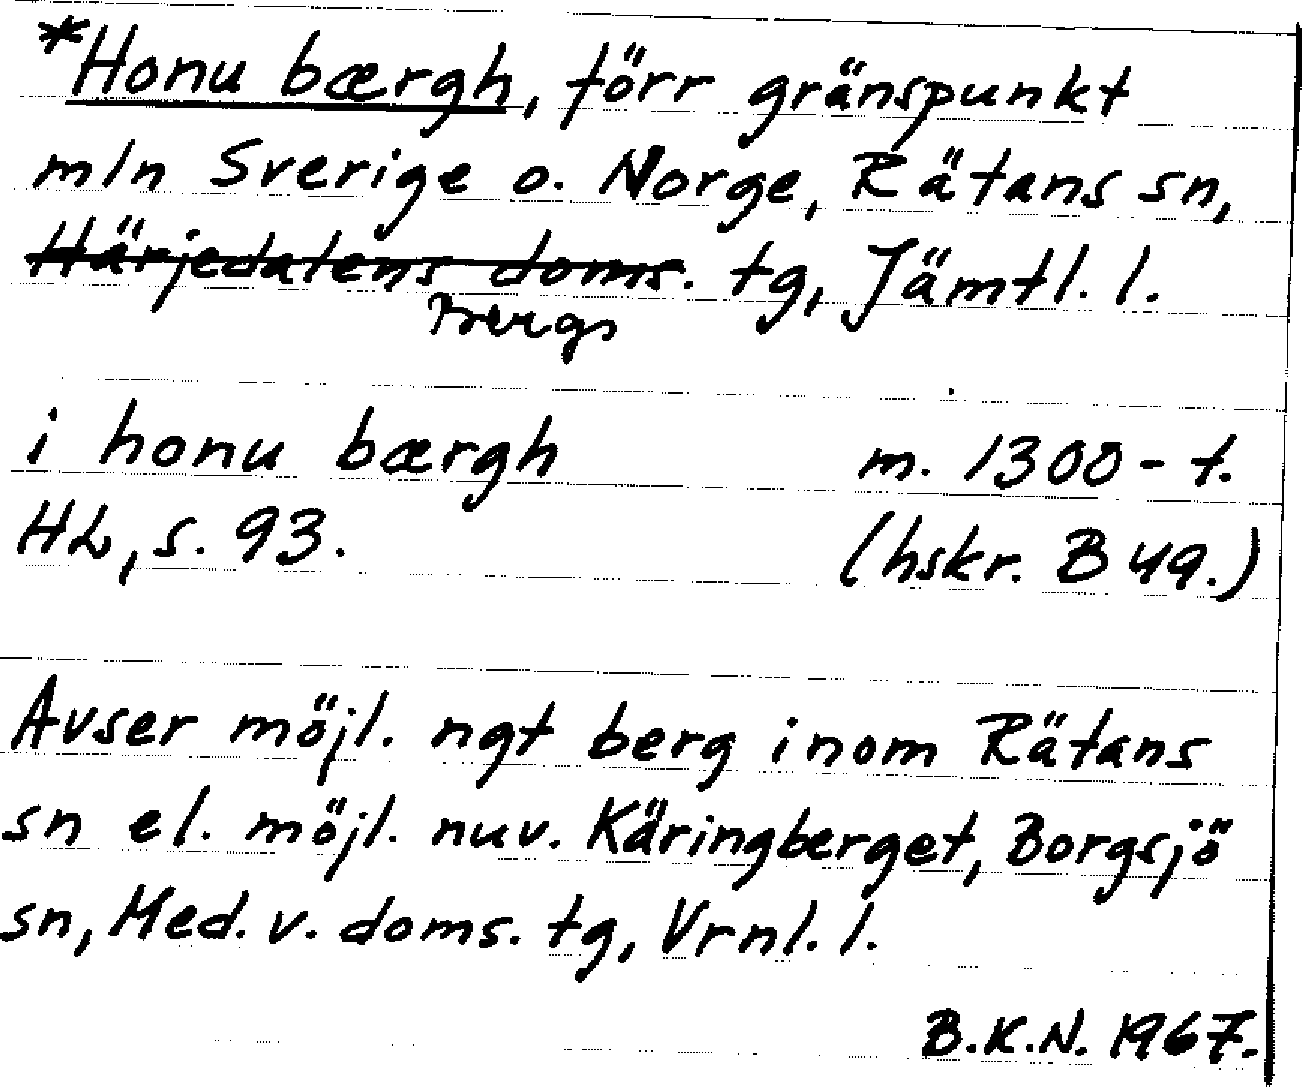 *Honu bærgh, förr gränspunkt
mln Sverige o. Norge, Rätans sn,
Härjedalens doms. tg, Jämtl. l.
Bergs
i honu bærgh m. 1300-t.
HL, s. 93. (hskr. B 49.)
Avser möjl. ngt berg inom Rätans
sn el. möjl. nuv. Käringberget, Borgsjö
sn, Med. v. doms. tg, Vrnl. l.
B.K.N. 1967.